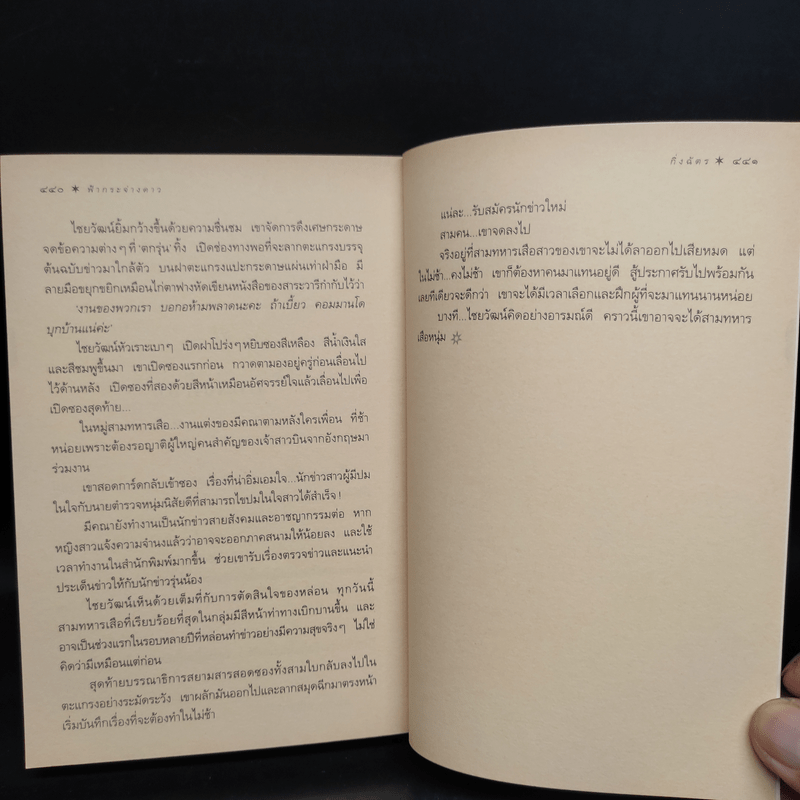 ๔๔๐ ✶ ฟ้ากระจ่างดาว
ไชยวัฒน์ยิ้มกว้างขึ้นด้วยความชื่นชม เขาจัดการดึงเศษกระดาษ
จดข้อความต่างๆ ที่ 'ตกรุ่น' ทิ้ง เปิดช่องทางพอที่จะลากตะแกรงบรรจุ
ต้นฉบับข่าวมาใกล้ตัว บนฝาตะแกรงแปะกระดาษแผ่นเท่าฝ่ามือ มี
ลายมือขยุกขยิกเหมือนไก่ตาฟางหัดเขียนหนังสือของสาระวารีกำกับไว้ว่า
'งานของพวกเรา บอกอห้ามพลาดนะคะ ถ้าเบี้ยว คอมมานโด
บุกบ้านแน่ค่ะ'
ไชยวัฒน์หัวเราะเบาๆ เปิดฝาโปร่งๆ หยิบซองสีเหลือง สีน้ำเงินใส
และสีชมพูขึ้นมา เขาเปิดซองแรกก่อน กวาดตามองอยู่ครู่ก่อนเลื่อนไป
ไว้ด้านหลัง เปิดซองที่สองด้วยสีหน้าเหมือนอัศจรรย์ใจแล้วเลื่อนไปเพื่อ
เปิดซองสุดท้าย...
ในหมู่สามทหารเสือ...งานแต่งของมีคณาตามหลังใครเพื่อน ที่ช้า
หน่อยเพราะต้องรอญาติผู้ใหญ่คนสำคัญของเจ้าสาวบินจากอังกฤษมา
ร่วมงาน
เขาสอดการ์ดกลับเข้าซอง เรื่องที่น่าอิ่มเอมใจ...นักข่าวสาวผู้มีปม
ในใจกับนายตำรวจหนุ่มนิสัยดีที่สามารถไขปมในใจสาวได้สำเร็จ!
มีคณายังทำงานเป็นนักข่าวสายสังคมและอาชญากรรมต่อ หาก
หญิงสาวแจ้งความจำนงแล้วว่าอาจจะออกภาคสนามให้น้อยลง และใช้
เวลาทำงานในสำนักพิมพ์มากขึ้น ช่วยเขารับเรื่องตรวจข่าวและแนะนำ
ประเด็นข่าวให้กับนักข่าวรุ่นน้อง
ไชยวัฒน์เห็นด้วยเต็มที่กับการตัดสินใจของหล่อน ทุกวันนี้
สามทหารเสือที่เรียบร้อยที่สุดในกลุ่มมีสีหน้าท่าทางเบิกบานขึ้น และ
อาจเป็นช่วงแรกในรอบหลายปีที่หล่อนทำข่าวอย่างมีความสุขจริงๆ ไม่ใช่
คิดว่ามีเหมือนแต่ก่อน
สุดท้ายบรรณาธิการสยามสารสอดซองทั้งสามใบกลับลงไปใน
ตะแกรงอย่างระมัดระวัง เขาผลักมันออกไปและลากสมุดฉีกมาตรงหน้า
เริ่มบันทึกเรื่องที่จะต้องทำในไม่ช้า
กิ่งฉัตร ✶ ๔๔๑
แน่ละ...รับสมัครนักข่าวใหม่
สามคน...เขาจดลงไป
จริงอยู่ที่สามทหารเสือสาวของเขาจะไม่ได้ลาออกไปเสียหมด แต่
ในไม่ช้า...คงไม่ช้า เขาก็ต้องหาคนมาแทนอยู่ดี สู้ประกาศรับไปพร้อมกัน
เลยทีเดียวจะดีกว่า เขาจะได้มีเวลาเลือกและฝึกผู้ที่จะมาแทนนานหน่อย
บางที...ไชยวัฒน์คิดอย่างอารมณ์ดี คราวนี้เขาอาจจะได้สามทหาร
เสือหนุ่ม